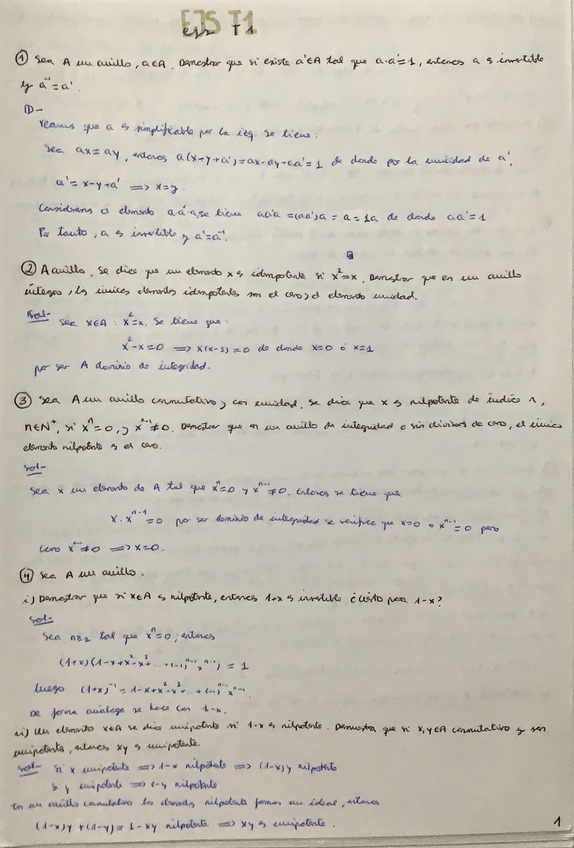 EJS T1
ejs T1
① Sea A un anillo, a∈A. Demostrar que si existe a'∈A tal que a·a'=1, entonces a es invertible
y a⁻¹=a'.
D-
Veamos que a es simplificable por la izq. Se tiene:
Sea ax=ay, entonces a(x-y+a')=ax-ay+aa'=1 de donde por la unicidad de a',
a'=x-y+a' ⟹ x=y.
Consideremos el elemento a·a'·a, se tiene aa'a=(aa')a=a=1a de donde aa'=1
Por tanto, a es invertible y a'=a⁻¹.
② A anillo, se dice que un elemento x es idempotente si x²=x. Demostrar que en un anillo
íntegro, los únicos elementos idempotentes son el cero y el elemento unidad.
Sol-
Sea x∈A : x²=x. Se tiene que:
x²-x=0 ⟹ x(x-1)=0 de donde x=0 ó x=1
por ser A dominio de integridad.
③ Sea A un anillo conmutativo y con unidad, se dice que x es nilpotente de índice n,
n∈N*, si xⁿ=0, y xⁿ⁻¹≠0. Demostrar que en un anillo de integridad o sin divisores de cero, el único
elemento nilpotente es el cero.
Sol-
Sea x un elemento de A tal que xⁿ=0 y xⁿ⁻¹≠0, entonces se tiene que
x·xⁿ⁻¹=0 por ser dominio de integridad se verifica que x=0 o xⁿ⁻¹=0 pero
como xⁿ⁻¹≠0 ⟹ x=0.
④ Sea A un anillo.
i) Demostrar que si x∈A es nilpotente, entonces 1+x es invertible ¿cierto para 1-x?
Sol-
Sea n≥1 tal que xⁿ=0, entonces
(1+x)(1-x+x²-x³+...+(-1)ⁿ⁻¹xⁿ⁻¹) = 1
luego (1+x)⁻¹=1-x+x²-x³...+(-1)ⁿ⁻¹xⁿ⁻¹.
De forma análoga se hace con 1-x.
ii) Un elemento x∈A se dice unipotente si 1-x es nilpotente. Demuestra que si x,y∈A conmutativo y son
unipotentes, entonces xy es unipotente.
Sol- Si x unipotente ⟹ 1-x nilpotente ⟹ (1-x)y nilpotente
Si y unipotente ⟹ 1-y nilpotente
En un anillo conmutativo los elementos nilpotentes forman un ideal, entonces
(1-x)y+(1-y)=1-xy nilpotente ⟹ xy es unipotente.
1